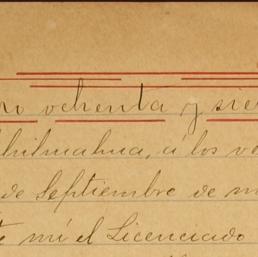 ochenta y
Chihuahua, á los
de Septiembre de
mí el Licenciado